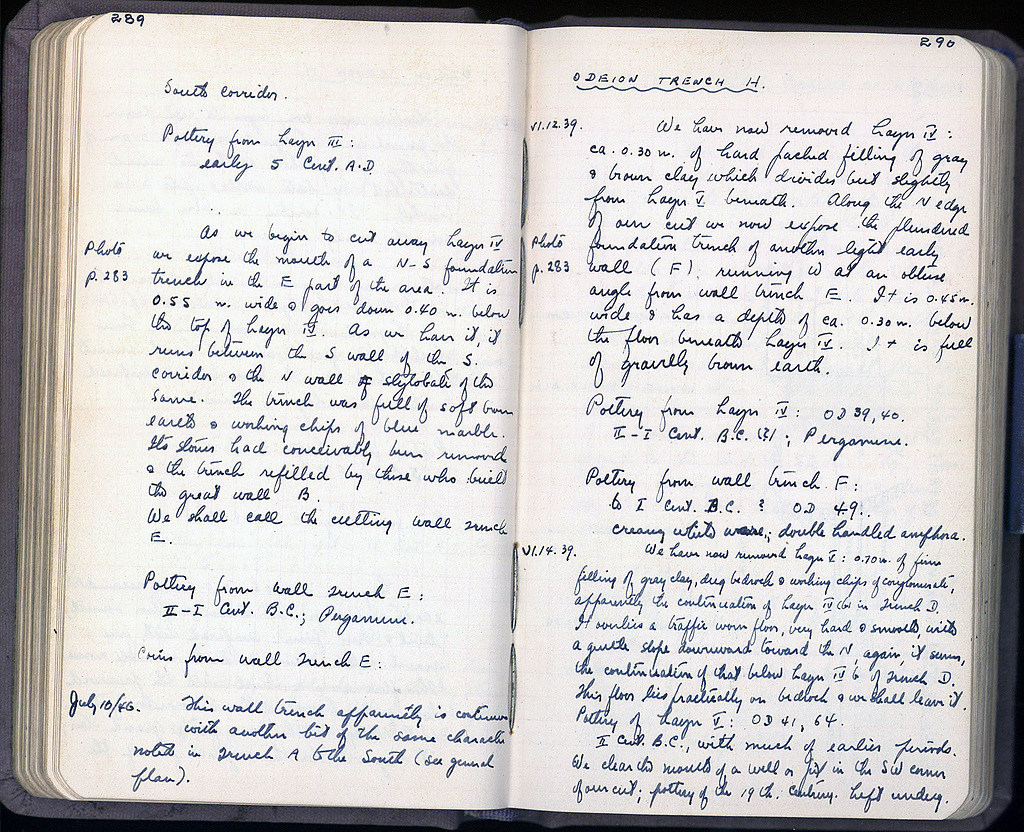 289
South corridor.
Pottery from Layer III:
early 5 Cent. A.D.
As we begin to cut away Layer IV
Photo
p. 283
we expose the mouth of a N-S foundation
trench in the E part of the area. It is
0.55 m. wide & goes down 0.40 m. below
the top of Layer IV. As we have it, it
runs between the S wall of the S.
corridor & the N wall of stylobate of the
same. The trench was full of soft brown
earth & working chips of blue marble.
Its stones had conceivably been removed
& the trench refilled by those who built
the great wall B.
We shall call the cutting wall trench
E.
Pottery from wall trench E:
II-I Cent. B.C.; Pergamene.
Coins from wall trench E:
July 10/46.
This wall trench apparently is continuous
with another bit of the same character
noted in Trench A to the South (see general
plan).
290
ODEION TRENCH H.
VI.12.39.
We have now removed Layer IV:
ca. 0.30 m. of hard packed filling of gray
& brown clay which divides but slightly
from Layer V beneath. Along the N edge
of our cut we now expose the plundered
Photo
p. 283
foundation trench of another light early
wall (F) running W at an obtuse
angle from wall trench E. It is 0.45 m.
wide & has a depth of ca. 0.30 m. below
the floor beneath Layer IV. It is full
of gravelly brown earth.
Pottery from Layer IV: OD 39, 40.
II-I Cent. B.C. (?); Pergamene.
Pottery from wall trench F:
to I Cent. B.C. ? OD 49.
creamy white ware; double handled amphora.
VI.14.39.
We have now removed Layer V: 0.70 m. of firm
filling of gray clay, dug bedrock & working chips of conglomerate,
apparently the continuation of Layer IV in Trench D.
It overlies a traffic worn floor, very hard & smooth, with
a gentle slope downward toward the N, again, it seems,
the continuation of that below Layer IV b of Trench D.
This floor lies practically on bedrock & we shall leave it.
Pottery of Layer V: OD 41, 64.
II Cent. B.C., with much of earlier periods.
We clear the mouth of a well or pit in the SW corner
of our cut; pottery of the 19th. century. Left undug.